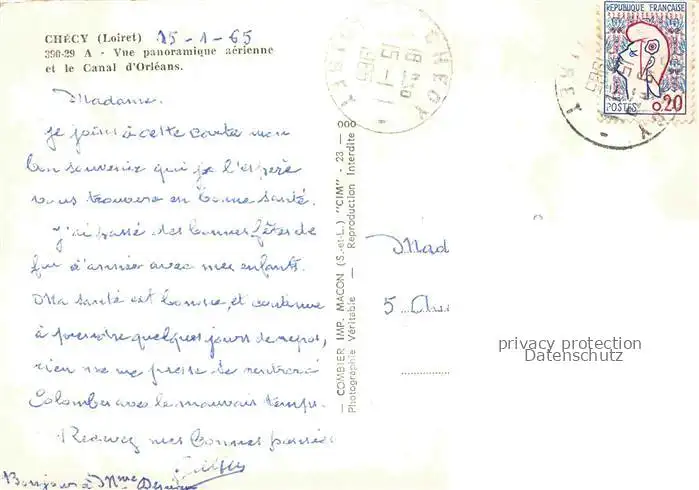 CHÉCY (Loiret) 15-1-65
390-29 A - Vue panoramique aérienne
et le Canal d'Orléans.
Madame.
je joins à cette carte mon
bon souvenir qui je l'espère
vous trouvera en bonne santé.
J'ai passé des bonnes fêtes de
fin d'année avec mes enfants.
Ma santé est bonne, et continue
à prendre quelques jours de repos,
rien ne me presse de rentrer à
Colombes avec le mauvais temps.
Recevez mes bonnes pensées
Bonjour à Mme
COMBIER IMP. MACON (S.-et-L.) "CIM" - 23 - 000
Photographie Véritable - Reproduction Interdite
CHECY
LOIRET
18 H 30
15-1
1965
RÉPUBLIQUE FRANÇAISE
0,20
POSTES
Mad
5
privacy protection
Datenschutz